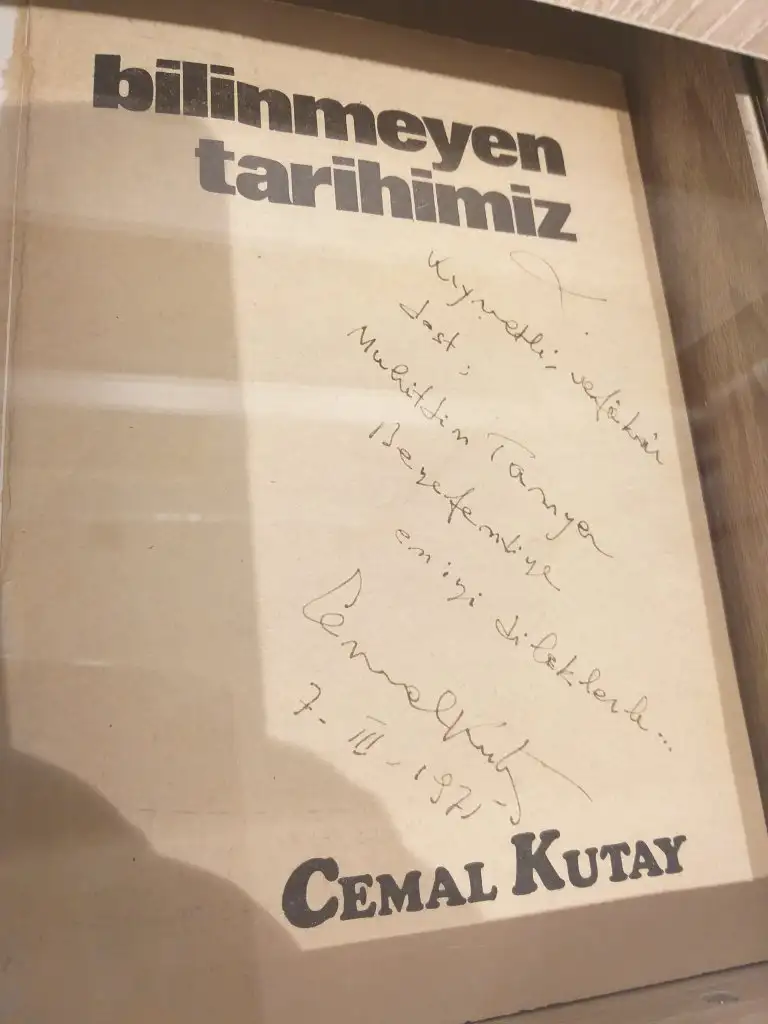 bilinmeyen
tarihimiz
Kıymetli, vefâkâr
dost;
Muhittin Tanyer
Beyefendiye
en iyi dileklerle...
Cemal Kutay
7-III-1975
CEMAL KUTAY